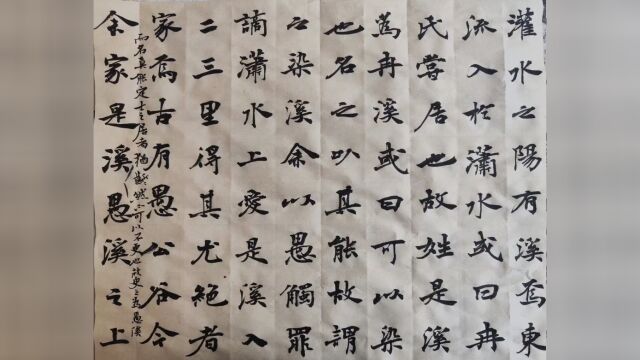 灌水之陽有溪焉東
流入於瀟水或曰冉
氏嘗居也故姓是溪
為冉溪或曰可以染
也名之以其能故謂
之染溪余以愚觸罪
謫瀟水上愛是溪入
二三里得其尤絕者
家焉古有愚公谷今
余家是溪愚溪之上
而名莫能定土之居者猶齗然不可以不更也故更之為愚溪